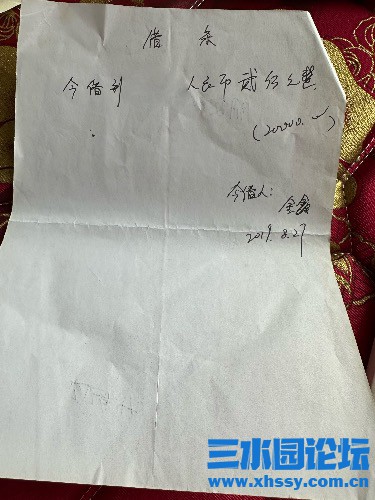 借条
今借到 人民币贰仟元整
(20000.00)
今借人:
金鑫
2019.8.27
三水园论坛
www.xhssy.com.cn